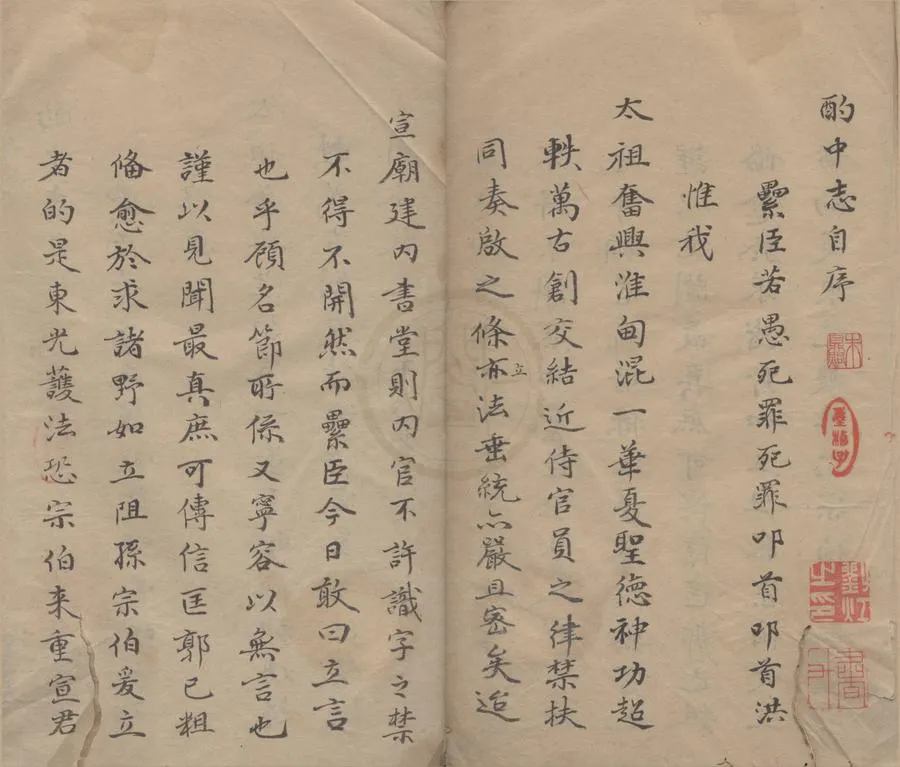 酌中志自序
纍臣若愚死罪死罪叩首叩首洪
惟我
太祖奮興淮甸混一華夏聖德神功超
軼萬古創交結近侍官員之律禁扶
同奏啟之條亦立法垂統亦嚴且密矣迨
宣廟建內書堂則內官不許識字之禁
不得不開然而纍臣今日敢曰立言
也乎顧名節所係又寧容以無言也
謹以見聞最真庶可傳信匡郭已粗
俻愈於求諸野如立阻孫宗伯爰立
者的是東光護法恐宗伯来重宣君